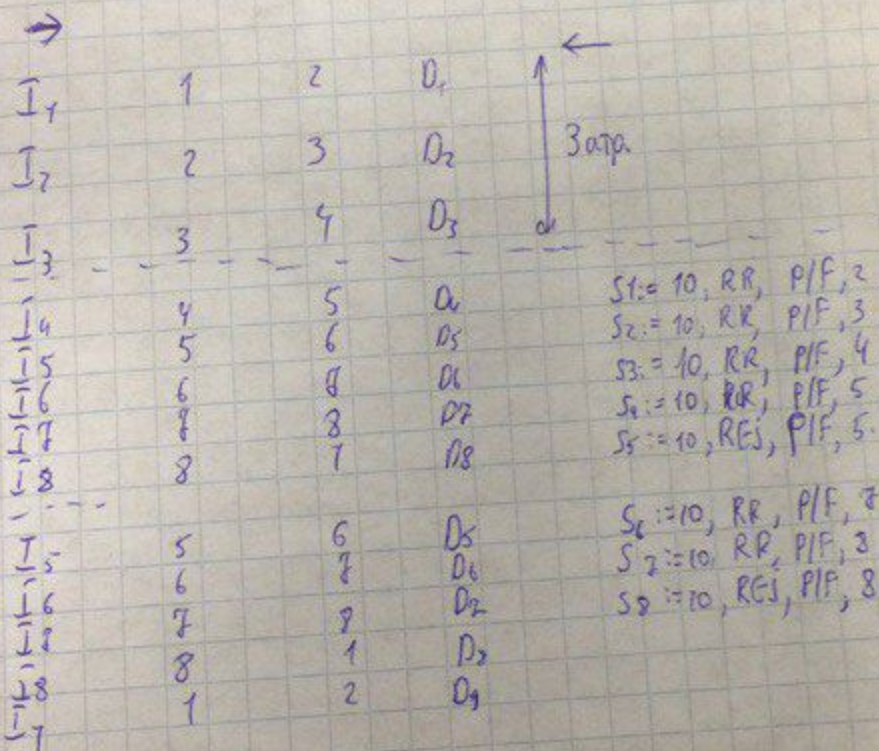 → ←
I₁ 1 2 D₁
I₂ 2 3 D₂
I₃ 3 4 D₃
I₄ 4 5 D₄ S1:= 10, RR, P/F, 2
I₅ 5 6 D₅ S₂:= 10, RR, P/F, 3
I₆ 6 D₆ S3:= 10, RR, P/F, 4
I₇ 8 D7 S₄:= 10, RR, P/F, 5
I₈ 8 D8 S₅:= 10, REJ, P/F, 5.
I₅ 5 6 D₅ S₆:=10, RR, P/F, 7
I₆ 6 7 D₆ S₇:=10, RR, P/F, 8
7 8 S8:=10, REJ, P/F, 8
I₈ 8 1
1 2 D₉